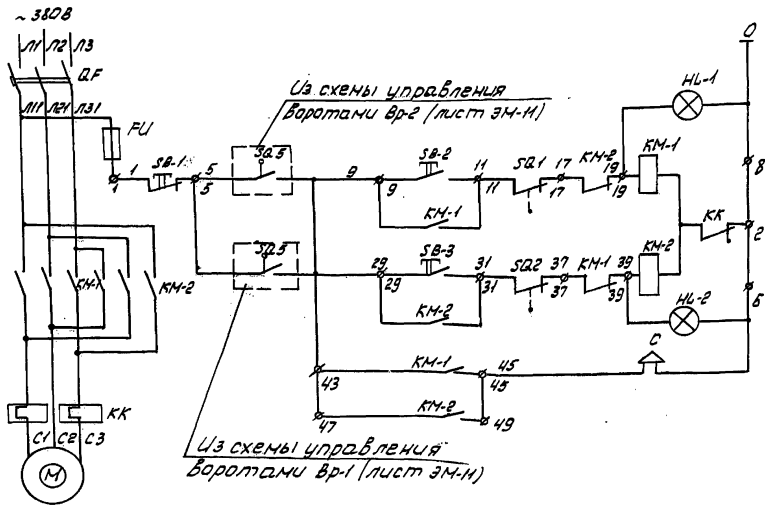 ~ 380В
Л1 Л2 Л3
QF
Л11 Л21 Л31
FU
1 1 SB-1 5 5
Из схемы управления
воротами Вр-2 (лист ЭМ-11)
SQ5
9 9 SB-2 11 11 SQ1 17 17 КМ-2 19 19 КМ-1
HL-1
О
КМ-1
8
КК 2
SQ5
29 29 SB-3 31 31 SQ2 37 37 КМ-1 39 39 КМ-2
КМ-2
HL-2
6
КМ-1 КМ-2
43 КМ-1 45 45 С
47 КМ-2 49
КК
С1 С2 С3
М
Из схемы управления
воротами Вр-1 (лист ЭМ-11)